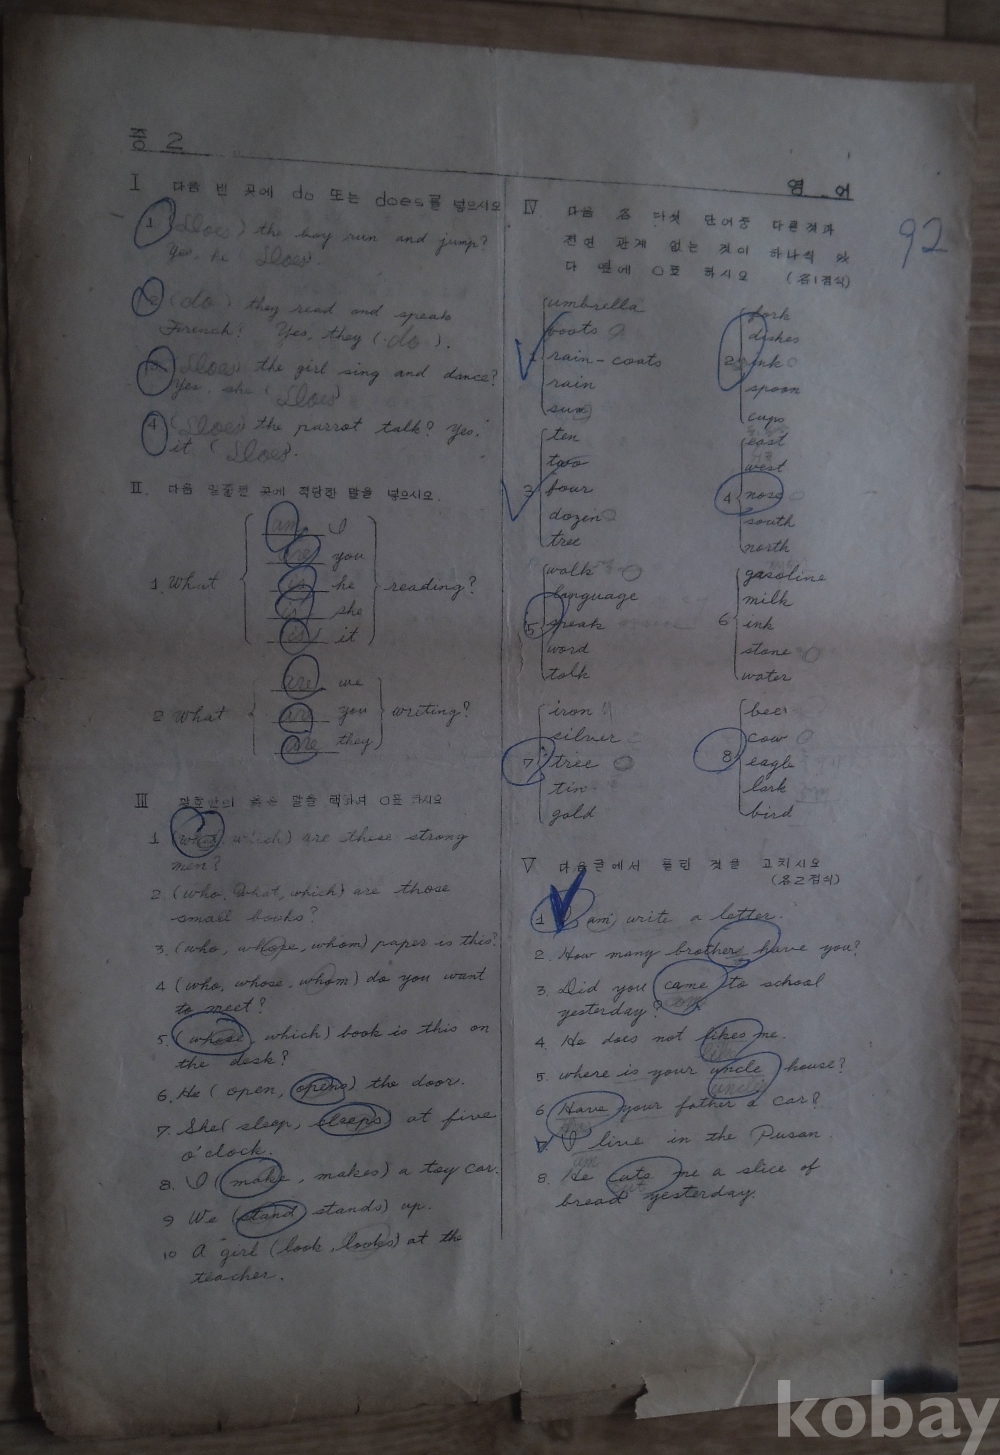 중 2
영 어
92
I 다음 빈 곳에 do 또는 does를 넣으시오
1 (Does) the boy run and jump?
Yes, he (Does).
2 (do) they read and speak
French? Yes, they (do).
3 (Does) the girl sing and dance?
Yes, she (Does)
4 (Does) the parrot talk? Yes,
it (Does).
II. 다음 밑줄친 곳에 적당한 말을 넣으시오.
am I
are you
1. What is he reading?
is she
is it
are we
2 What are you writing?
are they
III 괄호안의 옳은 말을 택하여 O표 하시오
1 (what, which) are these strong
men?
2 (who, what, which) are those
small books?
3. (who, whose, whom) paper is this?
4 (who, whose, whom) do you want
to meet?
5. (whose, which) book is this on
the desk?
6. He (open, opens) the door.
7. She (sleep, sleeps) at five
o'clock.
8. I (make, makes) a toy car.
9 We (stand, stands) up.
10 A girl (look, looks) at the
teacher.
IV 다음 각 다섯 단어중 다른것과
전연 관계 없는 것이 하나씩 있
다 옆에 O표 하시오 (각1점식)
umbrella
boots
rain-coats
rain
sun
fork
dishes
2 ink
spoon
cups
ten
two
3 four
dozen
tree
east
west
4 nose
south
north
walk
language
5 speak
word
talk
gasoline
milk
6 ink
stone
water
iron
silver
7 tree
tin
gold
bee
cow
8 eagle
lark
bird
V 다음글에서 틀린 것을 고치시오
(각2점식)
1 I am write a letter.
2. How many brother have you?
3. Did you came to school
yesterday?
4. He does not likes me.
5. where is your uncle house?
6 Have your father a car?
I live in the Pusan.
8. He cuts me a slice of
bread yesterday.
kobay